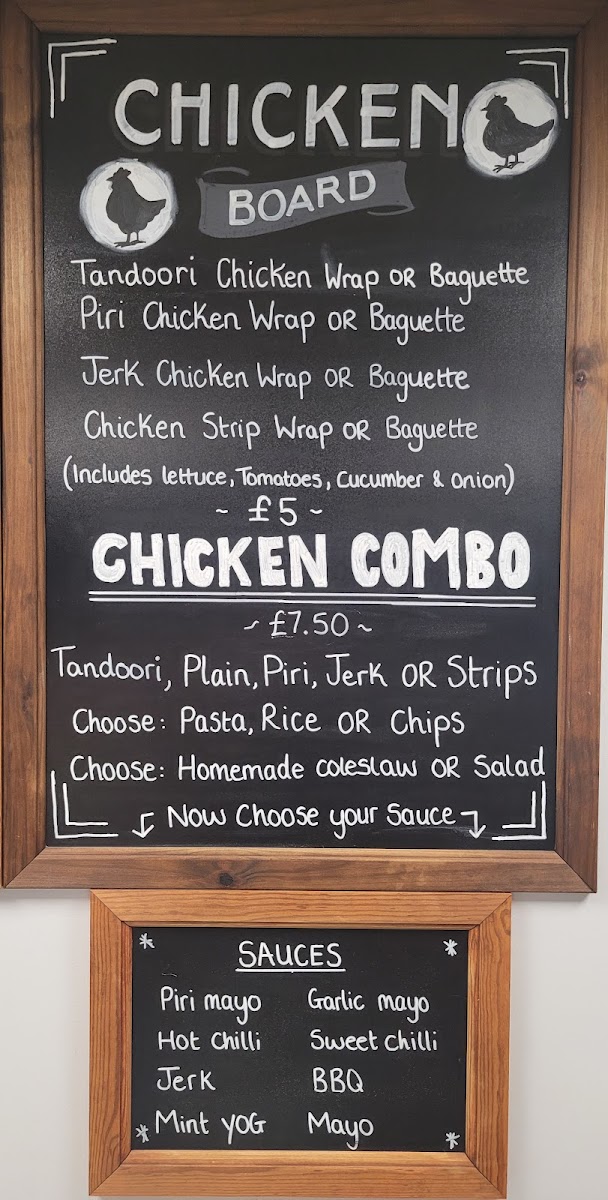 CHICKEN
BOARD
Tandoori Chicken Wrap OR Baguette
Piri Chicken Wrap OR Baguette
Jerk Chicken Wrap OR Baguette
Chicken Strip Wrap OR Baguette
(Includes lettuce, Tomatoes, Cucumber & Onion)
~ £5 ~
CHICKEN COMBO
~ £7.50 ~
Tandoori, Plain, Piri, Jerk OR Strips
Choose: Pasta, Rice OR Chips
Choose: Homemade coleslaw OR Salad
Now Choose your Sauce
SAUCES
Piri mayo Garlic mayo
Hot Chilli Sweet chilli
Jerk BBQ
Mint YOG Mayo